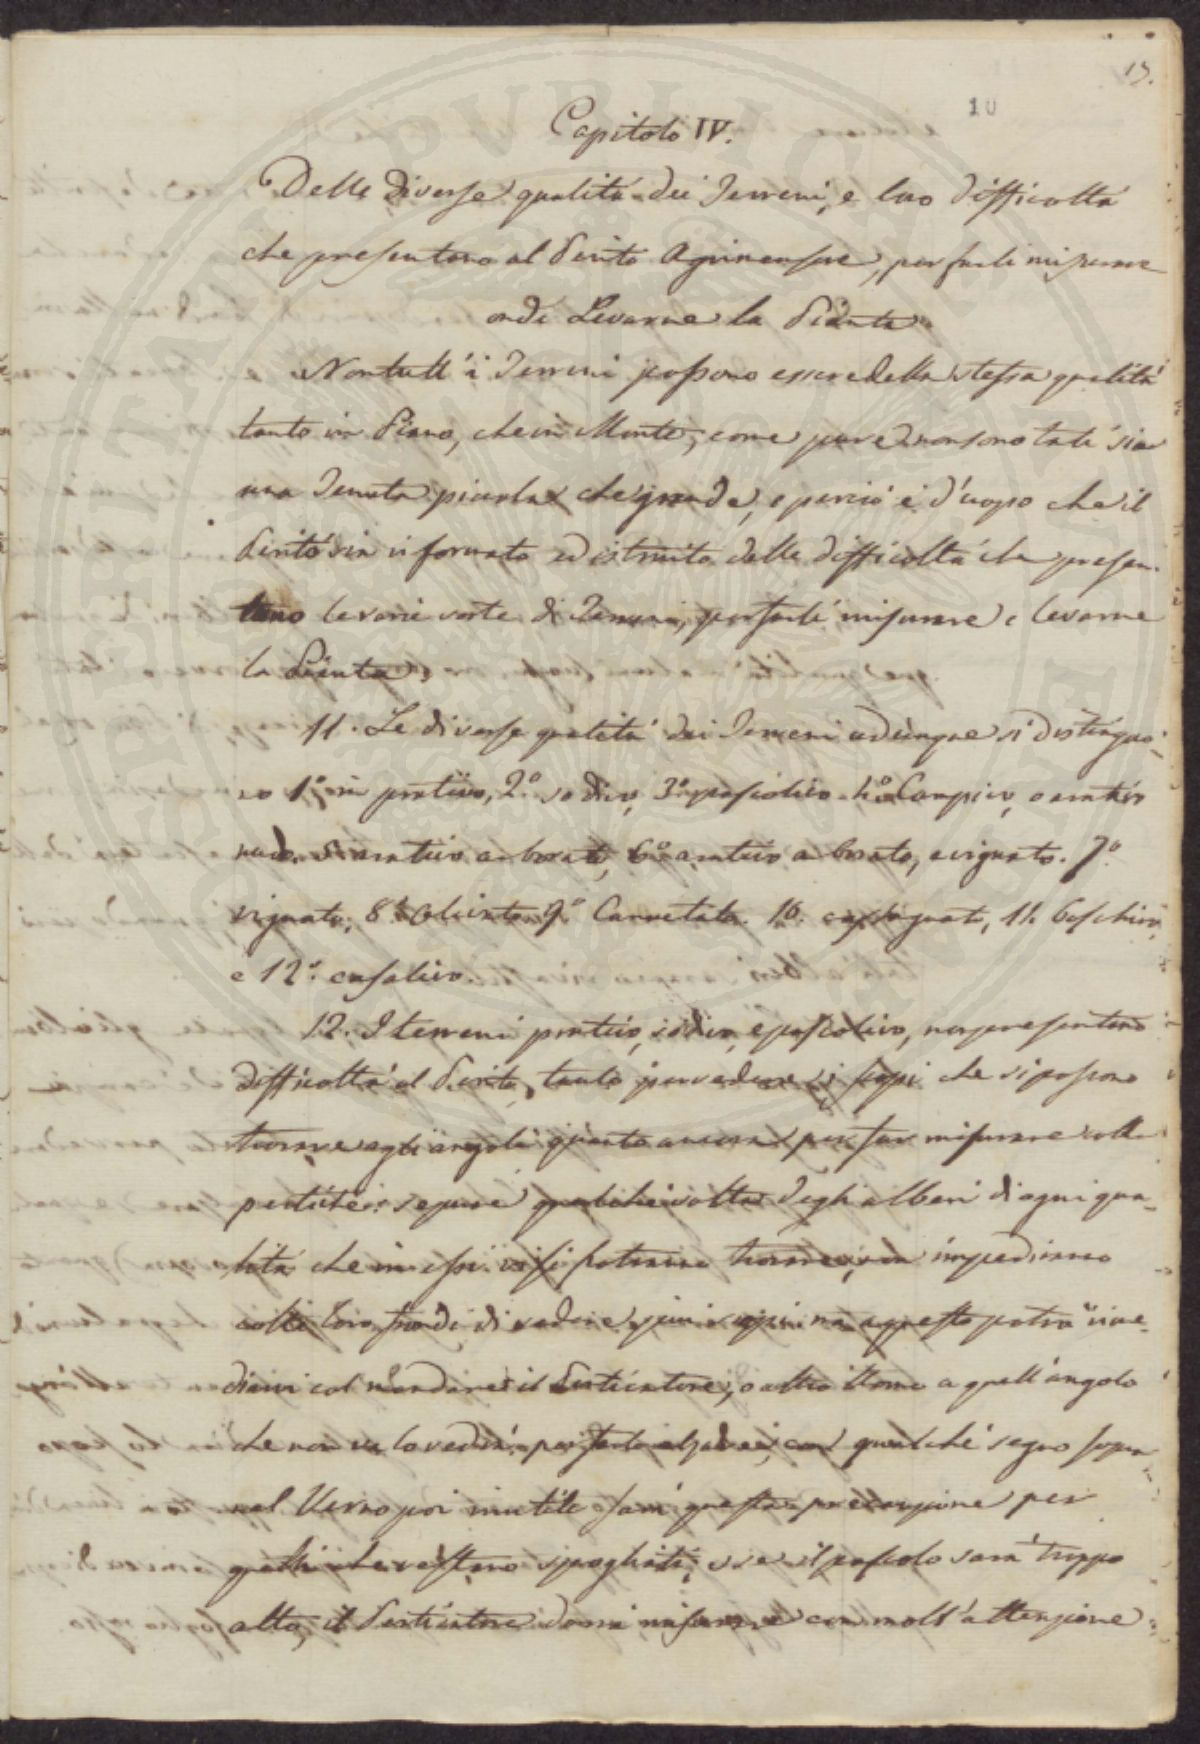 19.
10
Capitolo IV.
Delle diverse qualità dei Terreni, e loro difficoltà
che presentano al Perito Agrimensore, per farli misurare
onde Levarne la Pianta.
Non tutt'i Terreni possono essere della stessa qualità
tanto in Piano, che in Monte, come pure non sono tali sia
una Tenuta piccola che grande, e perciò è d'uopo che il
Perito sia informato ed istruito delle difficoltà che presen-
tano le varie sorte di Terreni, per farli misurare e levarne
la Pianta.
11. Le diverse qualità dei Terreni adunque si distinguo-
no 1.° in prativo, 2.° sodivo, 3.° pascolivo 4.° Campivo, o arativo
nudo. 5.° arativo arborato, 6.° arativo arborato, e vignato. 7.°
vignato, 8.° Olivato 9.° Cannetato. 10. castagnato, 11. Boschivo,
e 12.° casalivo.
12. I terreni prativo, sodivo, e pascolivo, non presentano
difficoltà al Perito, tanto per vedere i scopi che si possono
trovare agli angoli quanto ancora per far misurare colle
pertiche: seppure qualche volta degli alberi di ogni qua-
lità che in essi vi si potranno trovare, non impediranno
colle loro frondi di vedere, ma a questo potrà rime-
diarvi col mandare il Perticatore, o altro Uomo a quell'angolo
che non va lo vedrà, per farlo alzare, con qualche segno sopra
nel Verno poi inutile sarà questa precauzione per
quelli che restano spogliati, e se il pascolo sarà troppo
alto, il Perticatore dovrà misurare con molt'attenzione